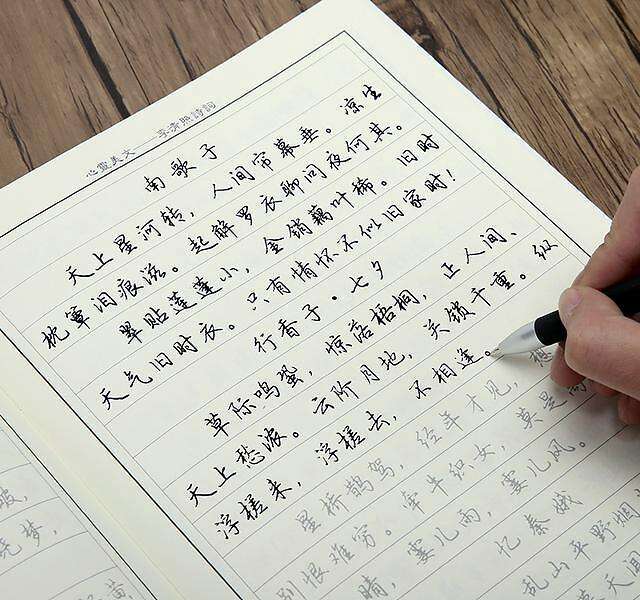 心靈美文 李清照詩詞
南歌子
天上星河转，人间帘幕垂。凉生
枕簟泪痕滋。起解罗衣聊问夜何其。
翠贴莲蓬小，金销藕叶稀。旧时
天气旧时衣。只有情怀不似旧家时！
行香子·七夕
草际鸣蛩，惊落梧桐，正人间、
天上愁浓。云阶月地，关锁千重。纵
浮槎来，浮槎去，不相逢。
星桥鹊驾，经年才见，想
别恨难穷。牵牛织女，莫是离
晴，霎儿雨，霎儿风。
忆秦娥
乱山平野烟